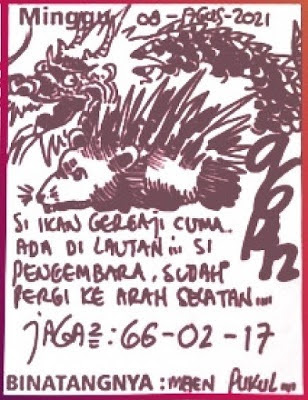 Minggu, 08-AGUS-2021
SI IKAN GERGAJI CUMA.
ADA DI LAUTAN iii SI
PENGEMBARA. SUDAH
PERGI KE ARAH SELATAN....
JAGA²=: 66-02-17
BINATANGNYA : MAEN PUKUL...